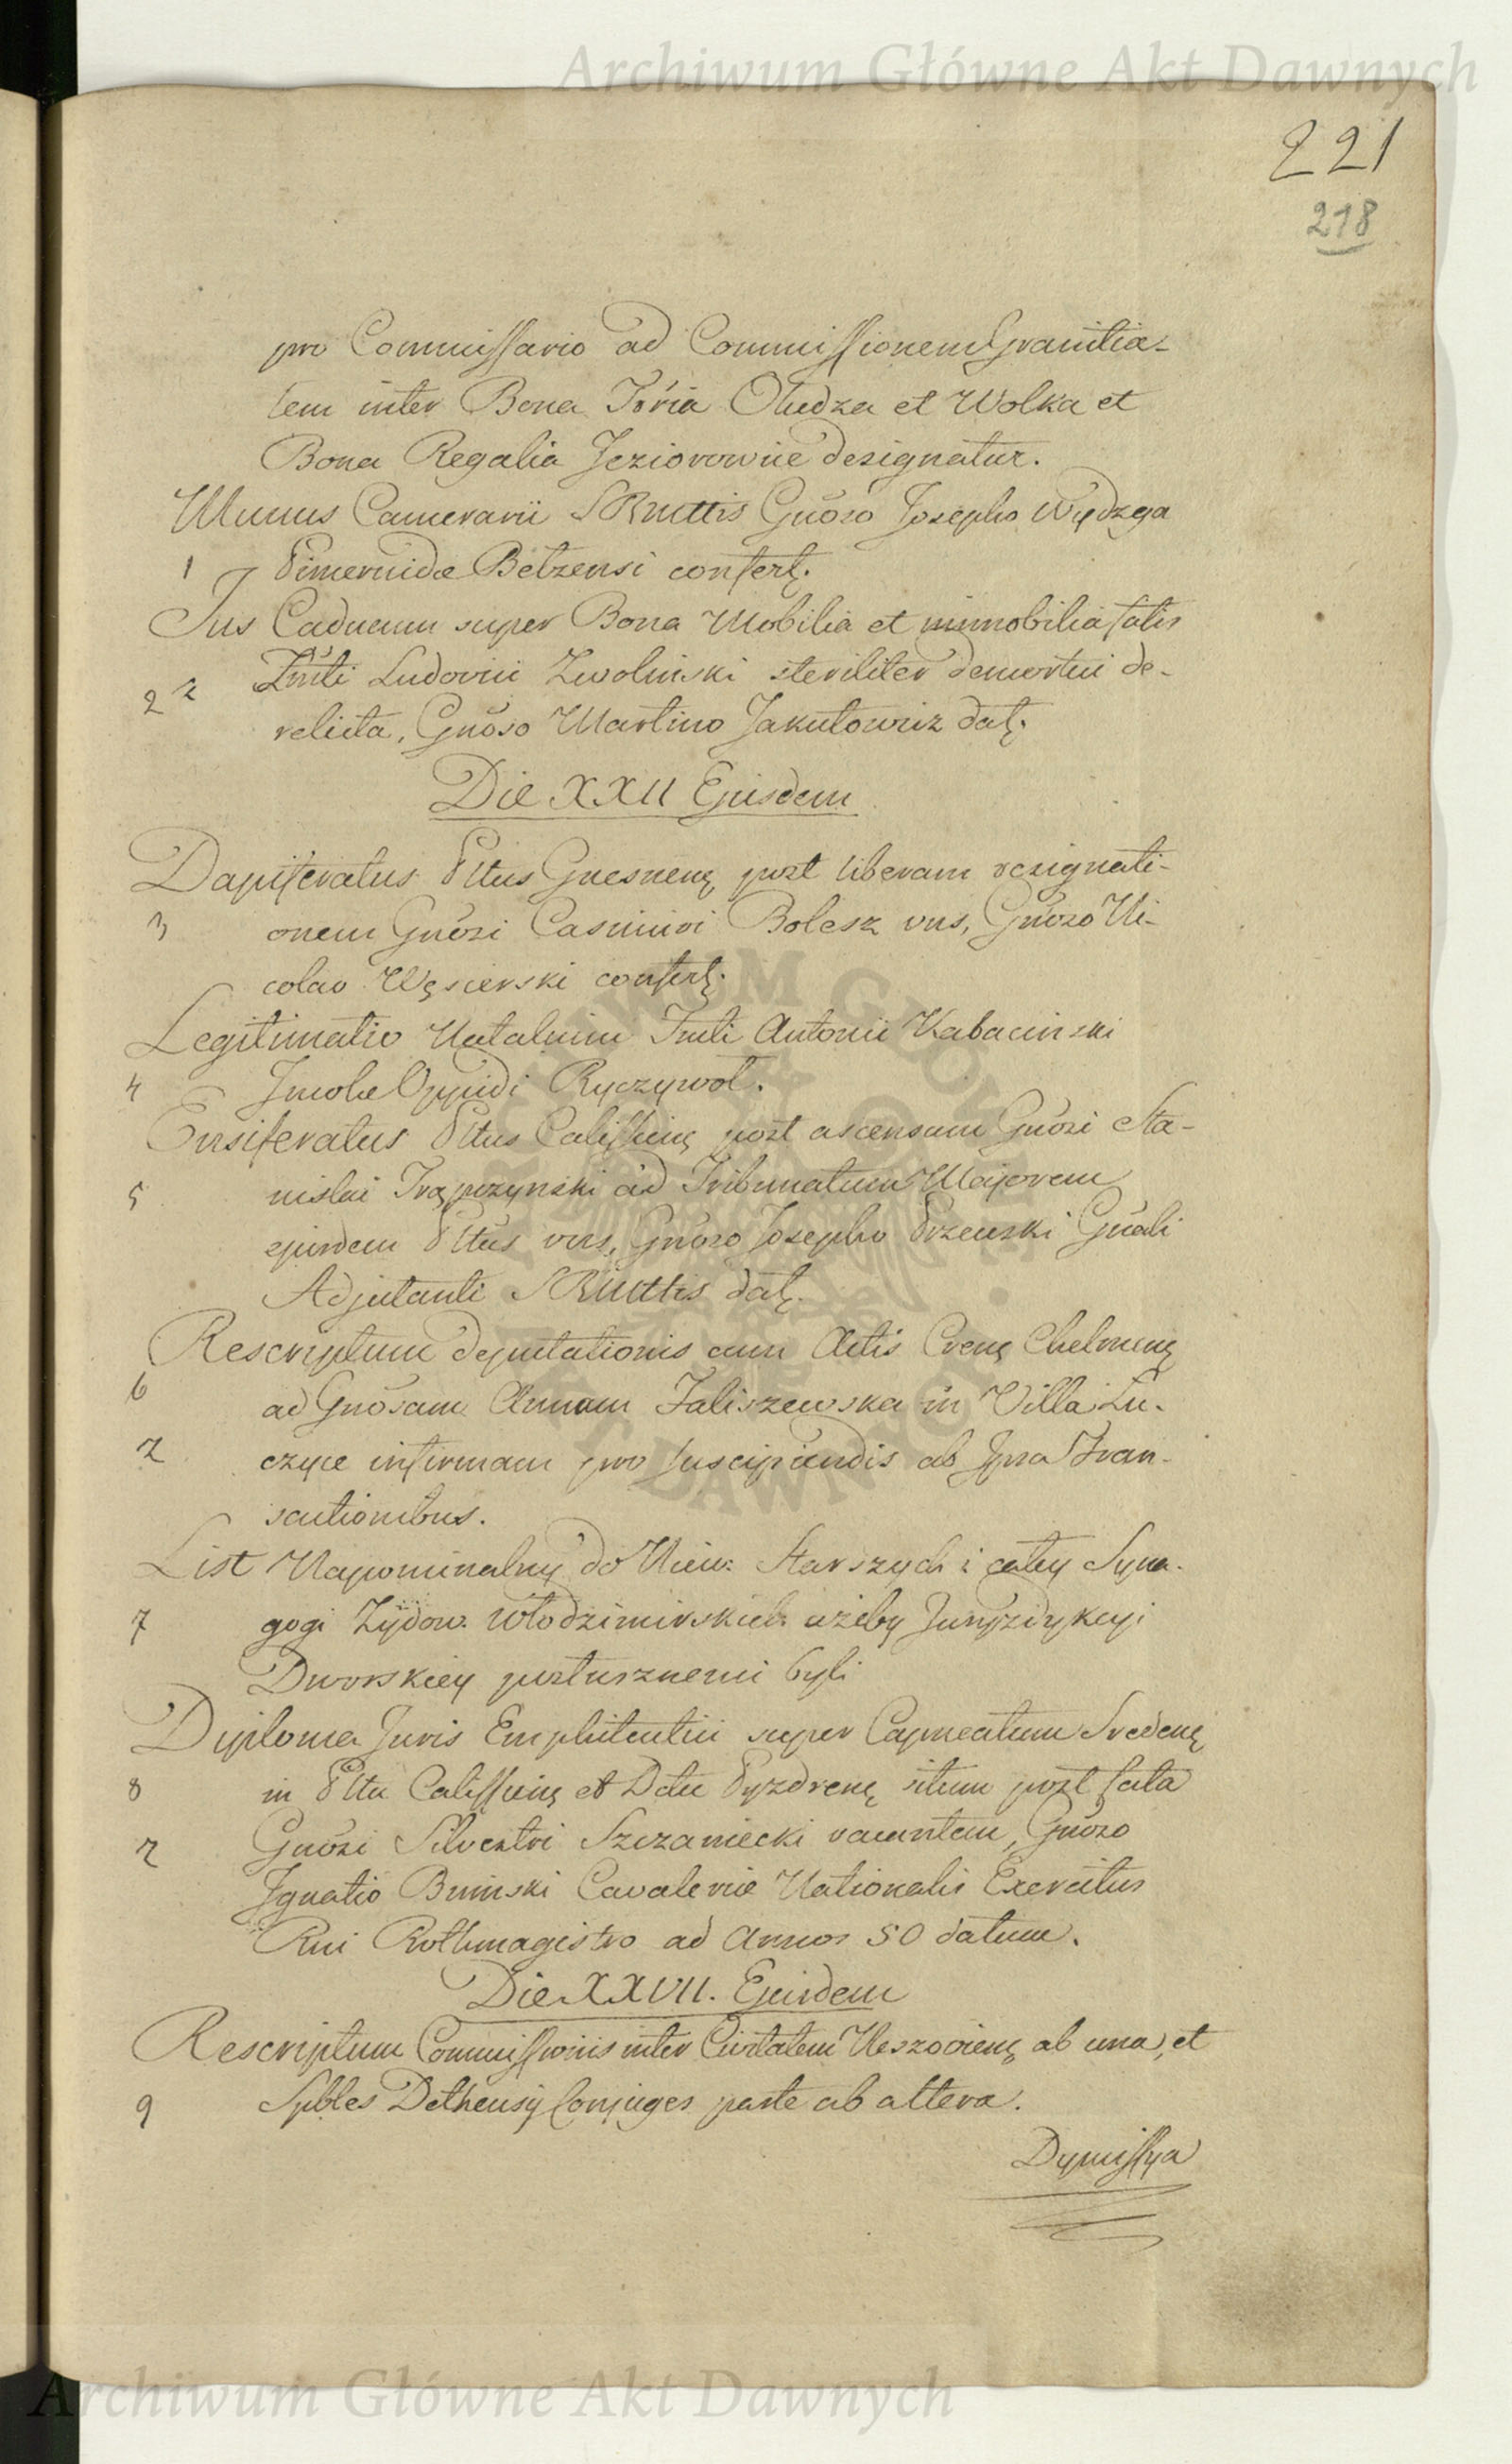 Archiwum Główne Akt Dawnych
221
218
pro Commissario ad Commissionem Granitia-
lem inter Bona Tŕria Oludza et Wolka et
Bona Regalia Jeziorownie designatur.
Munus Camerarii SRMttis Gnõso Josepho Wydzga
1 Pincernidæ Belzensi confert.
Jus Caducum super Bona Mobilia et immobilia fatis
2 2 Ludovici Zwolinski steriliter demortui de-
relicta, Gnõso Martino Jakutowicz dat.
Die XXII Ejusdem
Dapiferatus Pttus Gnesnens post liberam resignati-
3 onem Gnõsi Casimiri Bolesz vns, Gnõso Ni-
colao Węsierski confert.
Legitimatio Natalium Antonii Kabacinski
4 Incolæ Oppidi Ryczywol.
Ensiferatus Pttus Calissiens post ascensum Gnõsi Sta-
5 nislai Trąpczynski ad Tribunatum Majorem
ejusdem Pttus vns, Gnõso Josepho Gnali
Adjutanti SRMttis dat.
Rescriptum deputationis cum Actis Crens Chelmens
6 ad Gnõsam Annam Zaliszewska in Villa Lu-
2 czyce infirmam pro suscipiendis ab Ipsa Tran-
sactionibus.
List Napominalny do Niew. Starszych i całey Syna-
7 gogi Żydow. Włodzimirskich ażeby Juryzdykcyi
Dworskiey posłusznemi byli
Diploma Juris Emphiteutici super Capneatum Sredens
8 in Pttu Calissiens et Dttu Pyzdrens situm post fata
2 Gnõsi Silvestri Szczaniecki vacantem, Gnõso
Ignatio Bninski Cavaleriæ Nationalis Exercitus
Rni Rothmagistro ad Annos 50 datum.
Die XXVII. Ejusdem
Rescriptum Commissionis inter Civitatem Neszoviens ab una, et
9 Spbles Dethensÿ Conjuges parte ab altera.
Dymissya
Archiwum Główne Akt Dawnych